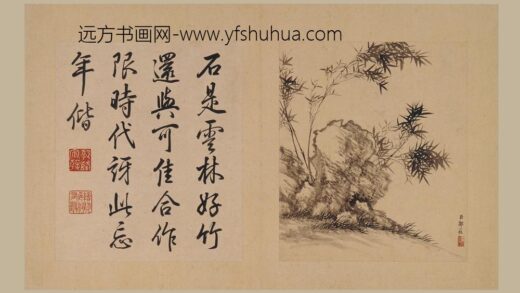 远方书画网-www.yfshuhua.com
石是雲林好竹
還與可佳合作
限時代訝此忘
年偕